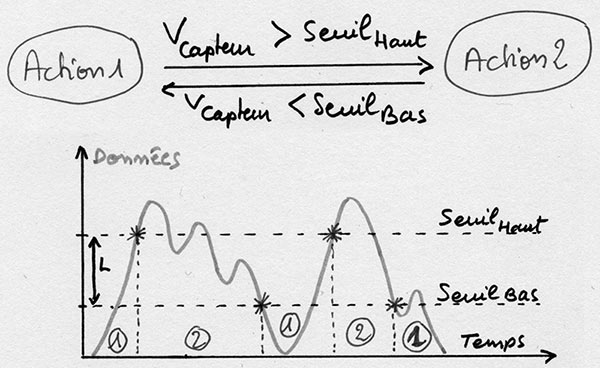 Action 1
V Capteur > Seuil Haut
Action 2
V Capteur < Seuil Bas
Données
Seuil Haut
L
Seuil Bas
1 2 1 2 1
Temps